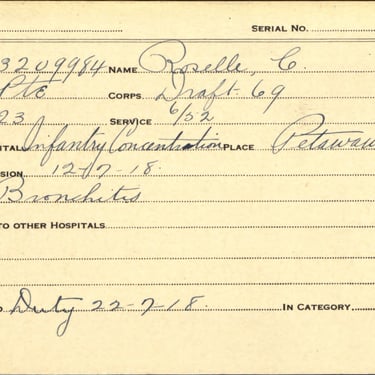 SERIAL NO.
3209984 NAME Roselle, C.
Pte CORPS Draft-69
23 SERVICE 6/52
ITAL Infantry Concentration PLACE Petawaw
SION 12-7-18.
Bronchitis
TO OTHER HOSPITALS
Duty 22-7-18. IN CATEGORY